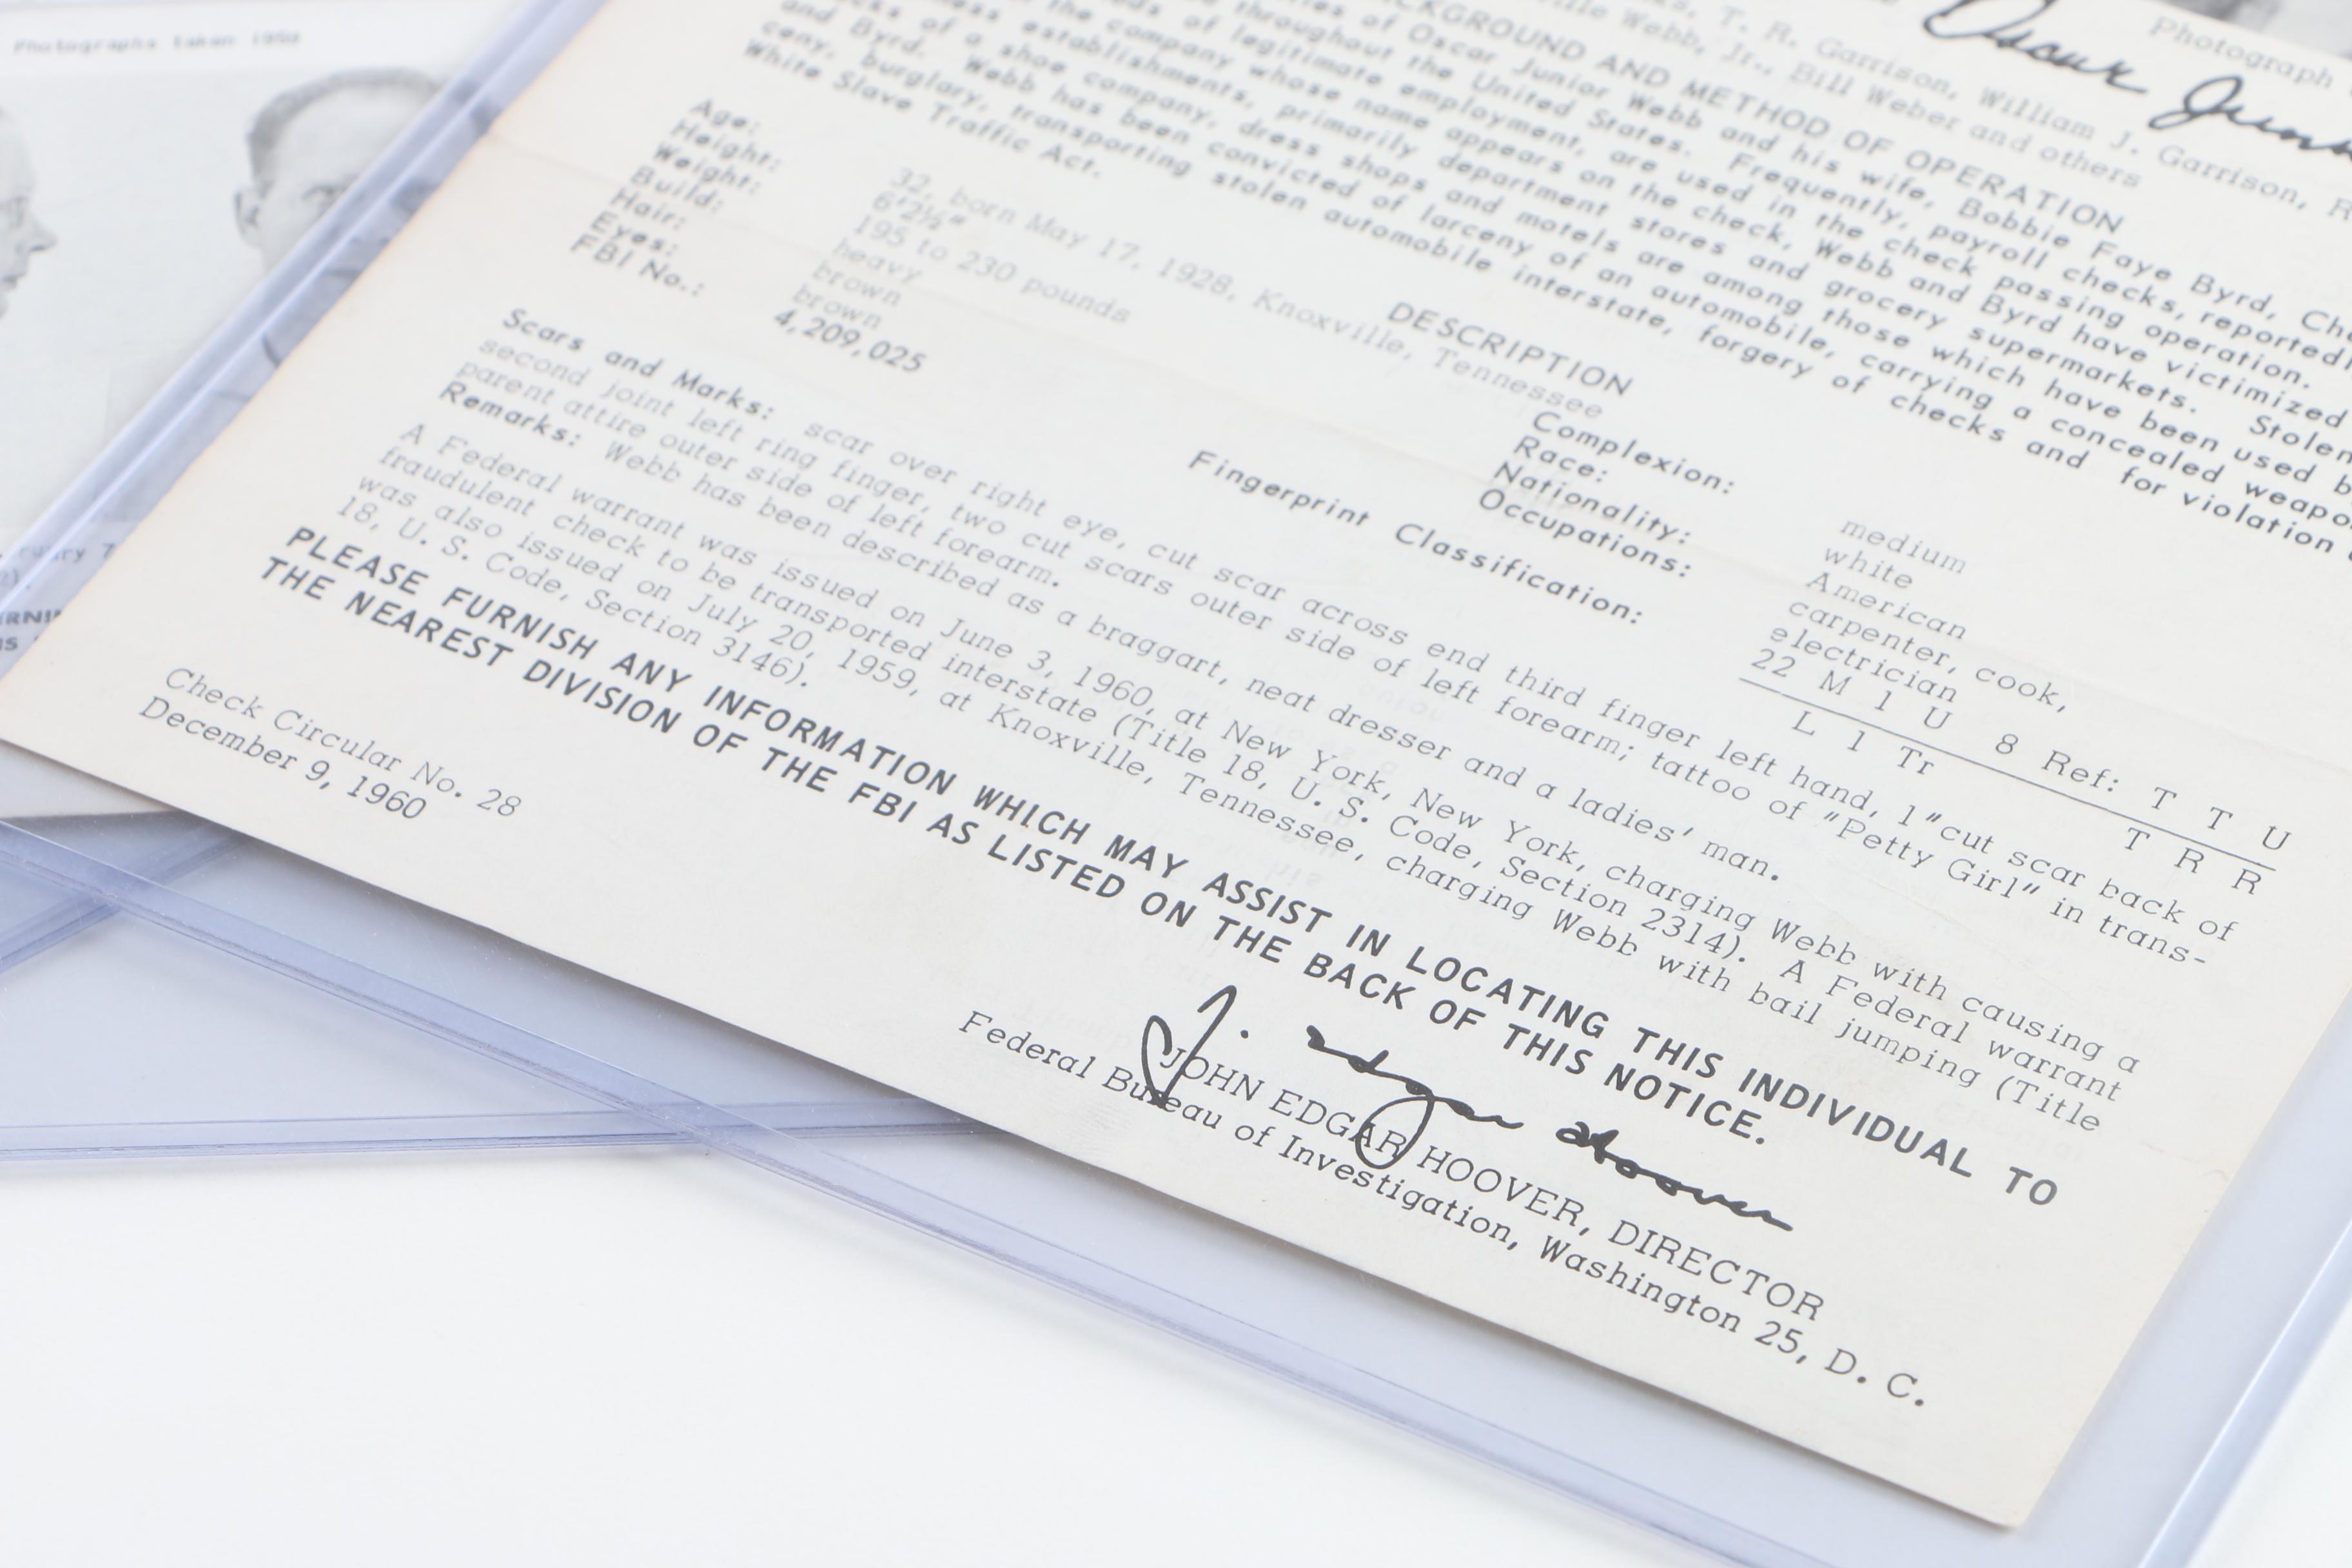 Photographs taken 1959
Photograph
Oscar Juni
T. R. Garrison, William J. Garrison, R
ville Webb, Jr., Bill Weber and others
CKGROUND AND METHOD OF OPERATION
of Oscar Junior Webb and his wife, Bobbie Faye Byrd, Ch
throughout the United States. Frequently, payroll checks, reported
of legitimate employment, are used in the check passing operation.
the company whose name appears on the check, Webb and Byrd have victimized
establishments, primarily department stores and grocery supermarkets. Stolen
of a shoe company, dress shops and motels are among those which have been used b
and Byrd. Webb has been convicted of larceny of an automobile, carrying a concealed weapo
ceny, burglary, transporting stolen automobile interstate, forgery of checks and for violation
White Slave Traffic Act.
DESCRIPTION
Age: 32, born May 17, 1928, Knoxville, Tennessee
Height: 6'2½"
Weight: 195 to 230 pounds
Build: heavy
Hair: brown
Eyes: brown
FBI No.: 4,209,025
Complexion: medium
Race: white
Nationality: American
Occupations: carpenter, cook,
electrician
Fingerprint Classification: 22 M 1 U 8 Ref: T T U
L 1 Tr T R R
Scars and Marks: scar over right eye, cut scar across end third finger left hand, 1" cut scar back of
second joint left ring finger, two cut scars outer side of left forearm; tattoo of "Petty Girl" in trans-
parent attire outer side of left forearm.
Remarks: Webb has been described as a braggart, neat dresser and a ladies' man.
A Federal warrant was issued on June 3, 1960, at New York, New York, charging Webb with causing a
fraudulent check to be transported interstate (Title 18, U. S. Code, Section 2314). A Federal warrant
was also issued on July 20, 1959, at Knoxville, Tennessee, charging Webb with bail jumping (Title
18, U. S. Code, Section 3146).
PLEASE FURNISH ANY INFORMATION WHICH MAY ASSIST IN LOCATING THIS INDIVIDUAL TO
THE NEAREST DIVISION OF THE FBI AS LISTED ON THE BACK OF THIS NOTICE.
Check Circular No. 28
December 9, 1960
J. Edgar Hoover
JOHN EDGAR HOOVER, DIRECTOR
Federal Bureau of Investigation, Washington 25, D. C.